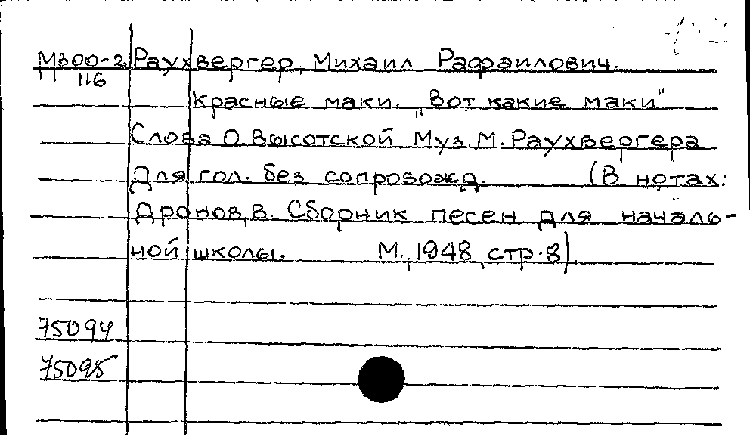 М300-2 Раухвергер, Михаил Рафаилович.
116
Красные маки. "Вот какие маки"
Слова О. Высотской Муз. М. Раухвергера
Для гол. без сопровожд. (В нотах:
Дронов, В. Сборник песен для началь-
ной школы. М., 1948, стр. 8)
75094
75095